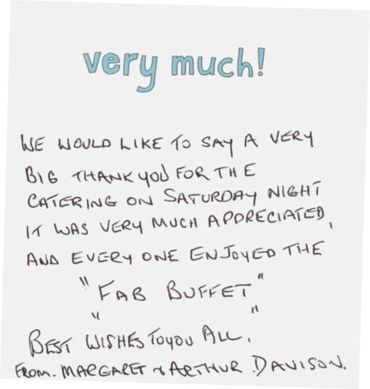 very much!
WE WOULD LIKE TO SAY A VERY
BIG THANK YOU FOR THE
CATERING ON SATURDAY NIGHT
IT WAS VERY MUCH APPRECIATED,
AND EVERY ONE ENJOYED THE
"FAB BUFFET"
" "
BEST WISHES TO YOU ALL.
FROM. MARGARET & ARTHUR DAVISON.